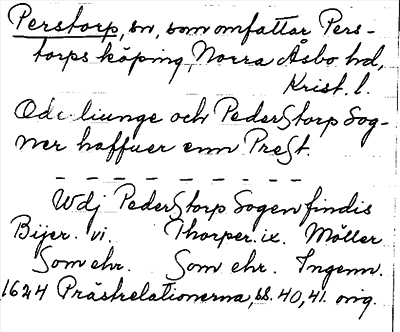 Perstorp, sn, som omfattar Pers-
torps köping, Norra Åsbo hd,
Krist. l.
Ode liunge och PederStorp Sog-
ner haffuer enn PreSt.
Wdj PederStorp Sogen findis
Bijer. vi. Thorper. ix. Möller
Som ehr. Som ehr. Ingenn.
1624 Prästrelationerna, bl. 40, 41. orig.